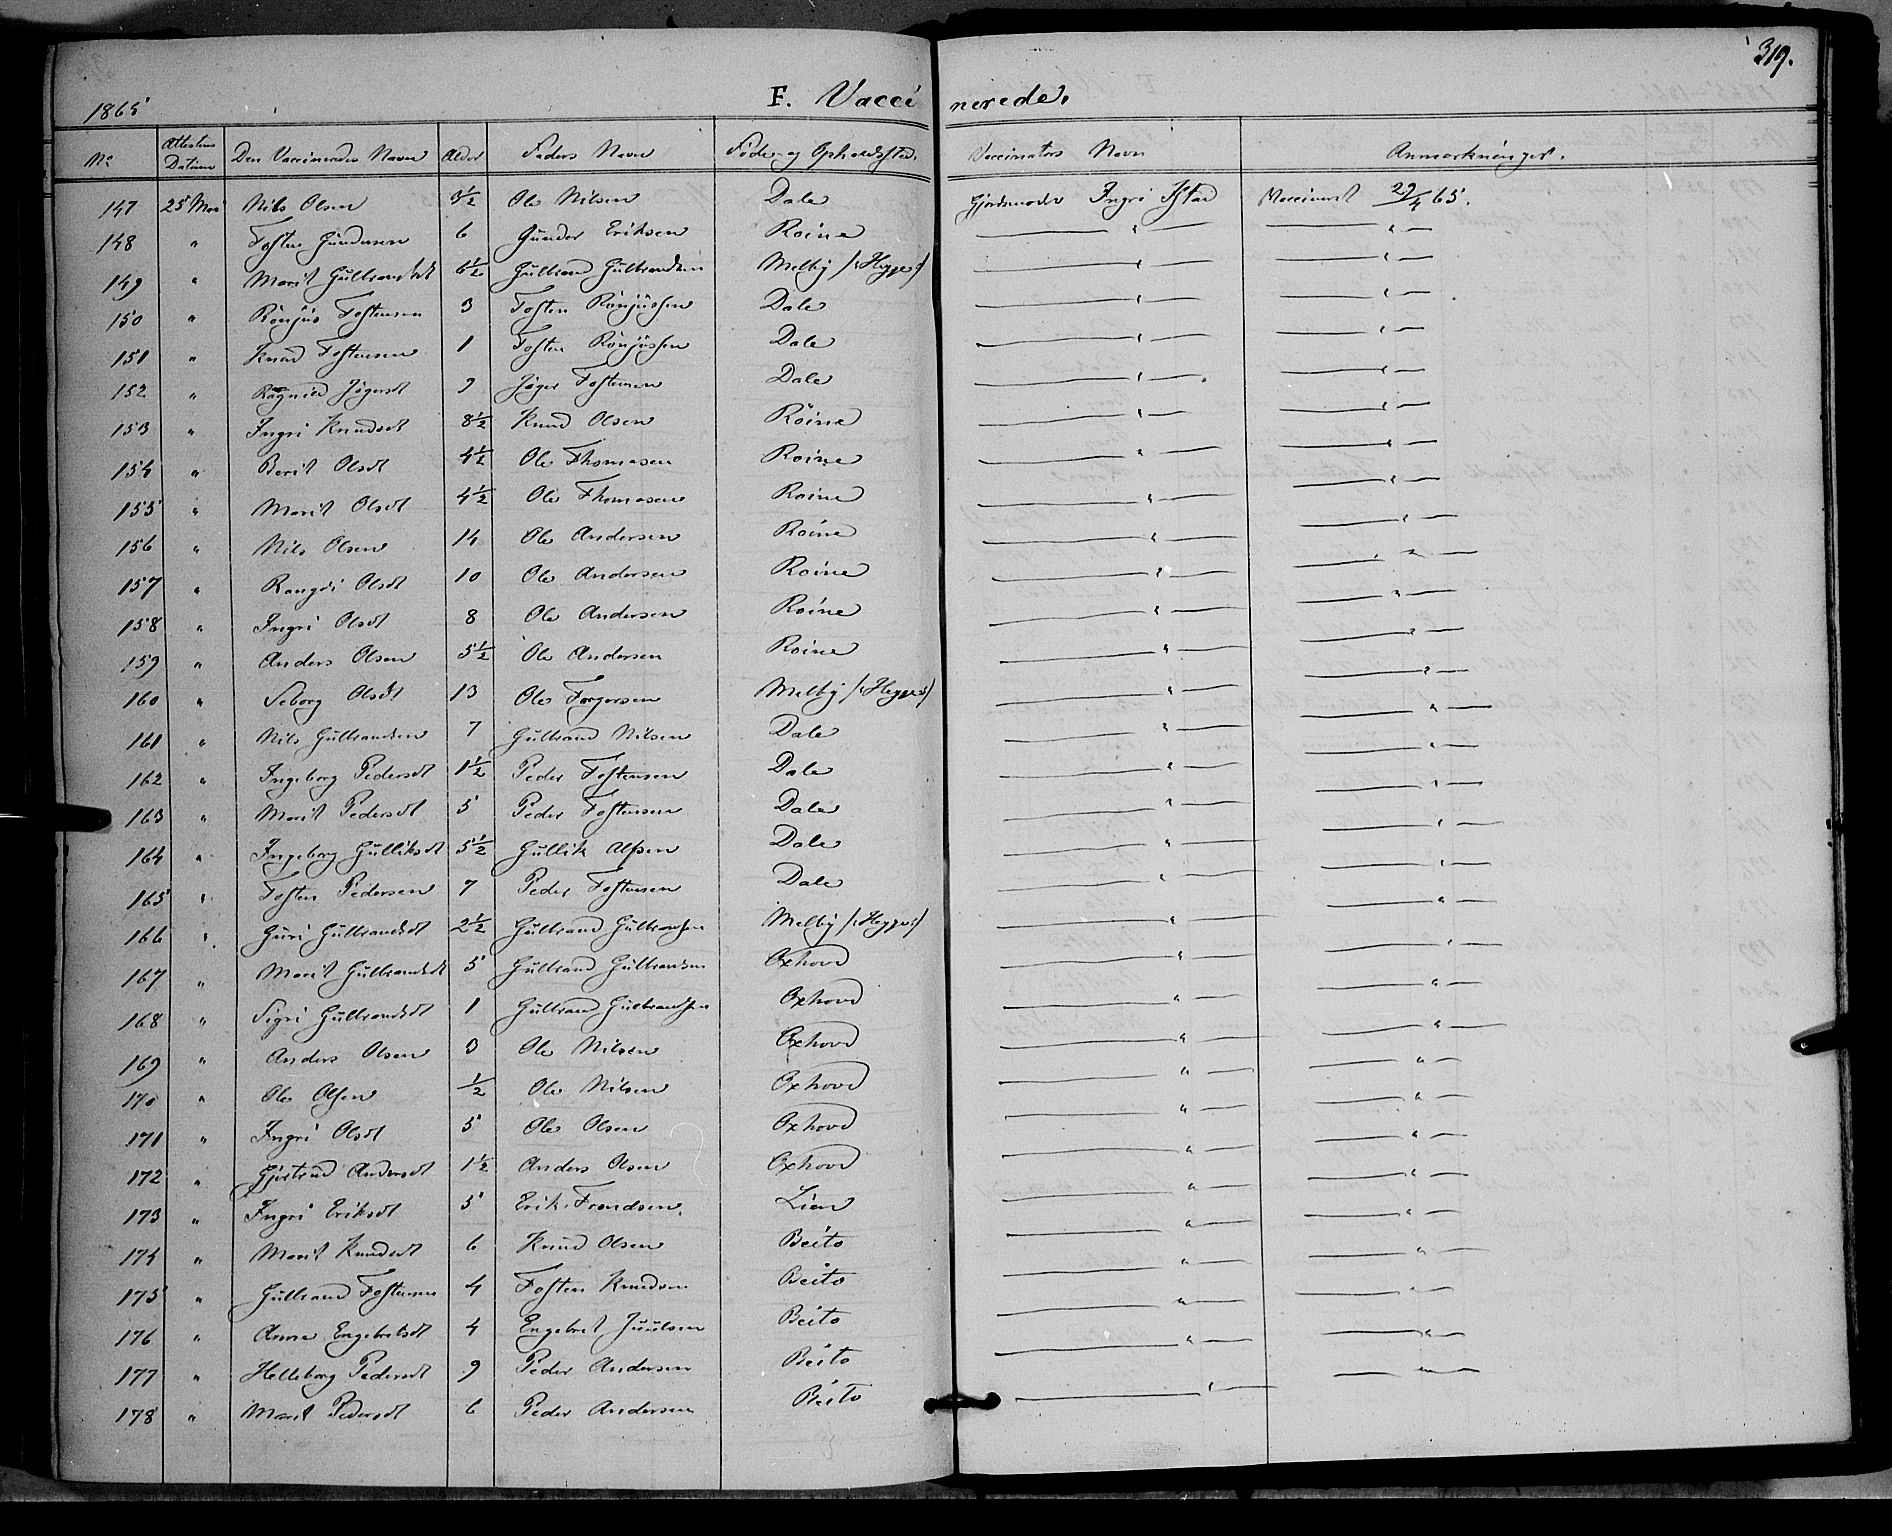 319.
1865 F. Vaccinerede.
No Attestens Datum Den Vaccineredes Navn Alder Faders Navn Føde- og Opholdssted. Vaccinators Navn Anmærkninger.
147 25 Mai Nils Olsen 3½ Ole Nilsen Dale Gjordmoder Ingri Ystad Vaccineret 29/4 65.
148 " Tosten Gundersen 6 Gunder Eriksen Roine — " — — " —
149 " Marit Gulbrandsdt 6½ Gulbrand Gulbrandsen Melby /:Hegge:/ — " — — " —
150 " Rönjús Tostensen 3 Tosten Rönjússen Dale — " — — " —
151 " Knud Tostensen 1 Tosten Rönjússen Dale — " — — " —
152 " Ragnild Jögersdt 9 Jöger Tostensen Dale — " — — " —
153 " Ingri Knudsdt 8½ Knud Olsen Röine — " — — " —
154 " Berit Olsdt 4½ Ole Thomasen Roine — " — — " —
155 " Marit Olsdt 4½ Ole Thomasen Roine — " — — " —
156 " Nils Olsen 14 Ole Andersen Roine — " — — " —
157 " Rangdi Olsdt 10 Ole Andersen Roine — " — — " —
158 " Ingri Olsdt 8 Ole Andersen Roine — " — — " —
159 " Anders Olsen 5½ Ole Andersen Roine — " — — " —
160 " Seborg Olsdt 13 Ole Torgersen Melby /:Hegge:/ — " — — " —
161 " Nils Gulbrandsen 7 Gulbrand Nilsen Dale — " — — " —
162 " Ingeborg Pedersdt 1½ Peder Tostensen Dale — " — — " —
163 " Marit Pedersdt 5 Peder Tostensen Dale — " — — " —
164 " Ingeborg Gulliksdt 5½ Gullik Alfsen Dale — " — — " —
165 " Tosten Pedersen 7 Peder Tostensen Dale — " — — " —
166 " Guri Gulbrandsdt 2½ Gulbrand Gulbransen Melby /:Hegge:/ — " — — " —
167 " Marit Gulbrandsdt 5 Gulbrand Gulbrandsen Oxhovd — " — — " —
168 " Sigri Gulbrandsdt 1 Gulbrand Gulbrandsen Oxhovd — " — — " —
169 " Anders Olsen 3 Ole Nilsen Oxhovd — " — — " —
170 " Ole Olsen ½ Ole Nilsen Oxhovd — " — — " —
171 " Ingri Olsdt 5 Ole Olsen Oxhovd — " — — " —
172 " Gjertrud Andersdt 1½ Anders Olsen Oxhovd — " — — " —
173 " Ingri Eriksdt 5 Erik Trondsen. Lien — " — — " —
174 " Marit Knudsdt 6 Knud Olsen Beito — " — — " —
175 " Gulbrand Tostensen 4 Tosten Knudsen Beito — " — — " —
176 " Anne Engebretsdt 4 Engebret Juulsen Beito — " — — " —
177 " Helleborg Pedersdt 9 Peder Andersen Beito — " — — " —
178 " Marit Pedersdt 6 Peder Andersen Beito — " — — " —